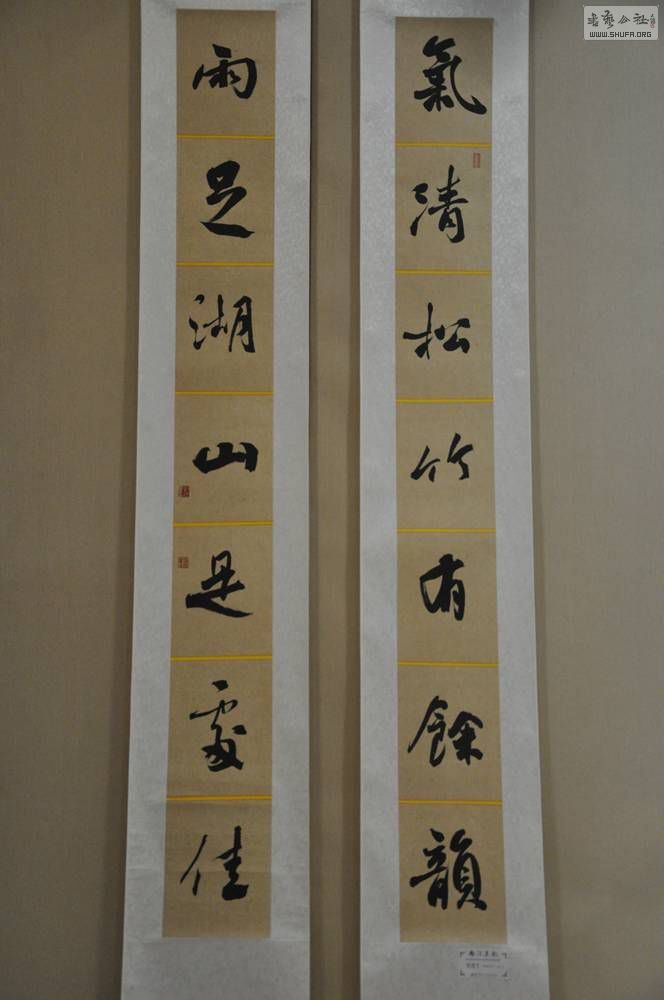 氣清松竹有餘韻
雨足湖山是處佳
書藝公社
WWW.SHUFA.ORG